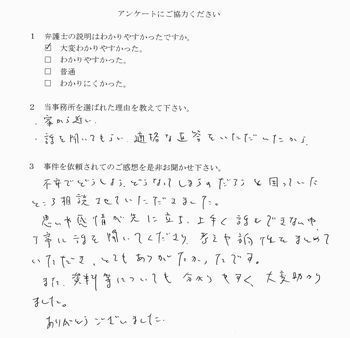 アンケートにご協力ください
1 弁護士の説明はわかりやすかったですか。
☑ 大変わかりやすかった。
□ わかりやすかった。
□ 普通
□ わかりにくかった。
2 当事務所を選ばれた理由を教えて下さい。
・家から近い
・話を聞いてもらい、適格な返答をいただいたから
3 事件を依頼されてのご感想を是非お聞かせ下さい。
不安でどうしよう、どうなってしまうのだろうと困っていた
ところ相談させていただきました。
思いや感情が先に立ち、上手く話しできない中、
丁寧に話を聞いてくださり、考えや調査をまとめて
いただき、とてもありがたかったです。
また、資料等についても分かりやすく、大変助かり
ました。
ありがとうございました。